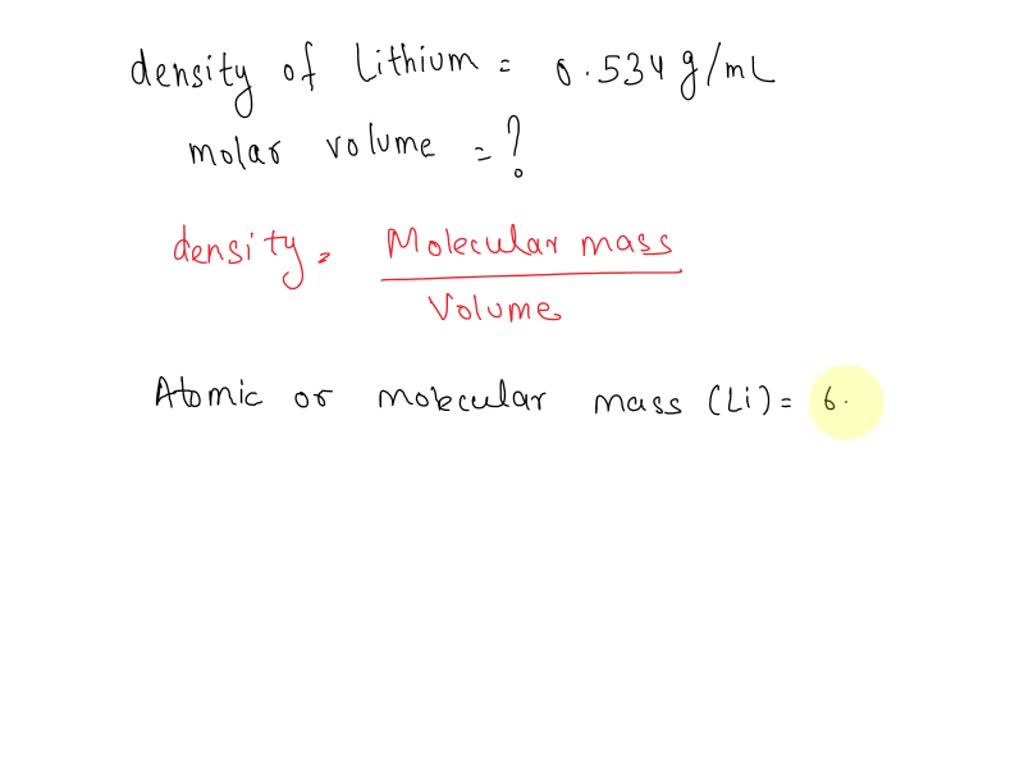 density of Lithium = 0.534 g/mL
molar volume = ?
density = Molecular mass / Volume
Atomic or molecular mass (Li) = 6.